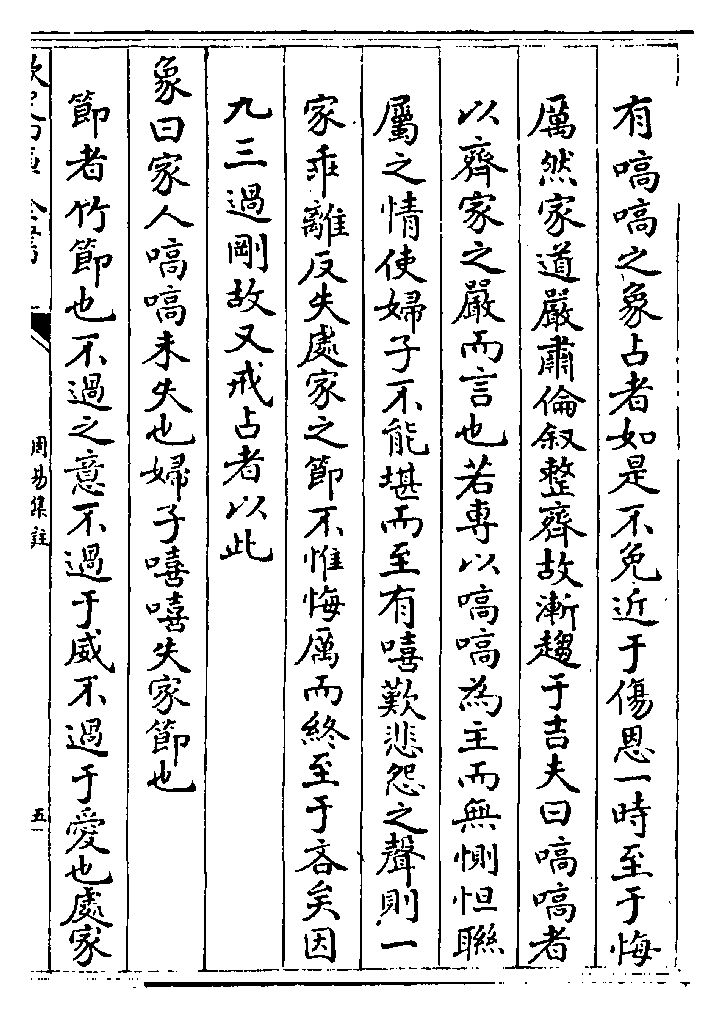 有嗃嗃之象占者如是不免近于傷恩一時至于悔
厲然家道嚴肅倫叙整齊故漸趨于吉夫曰嗃嗃者
以齊家之嚴而言也若專以嗃嗃為主而無惻怛聯
屬之情使婦子不能堪而至有嘻歎悲怨之聲則一
家乖離反失處家之節不惟悔厲而終至于吝矣因
九三過剛故又戒占者以此
象曰家人嗃嗃未失也婦子嘻嘻失家節也
節者竹節也不過之意不過于威不過于愛也處家
周易集註
五